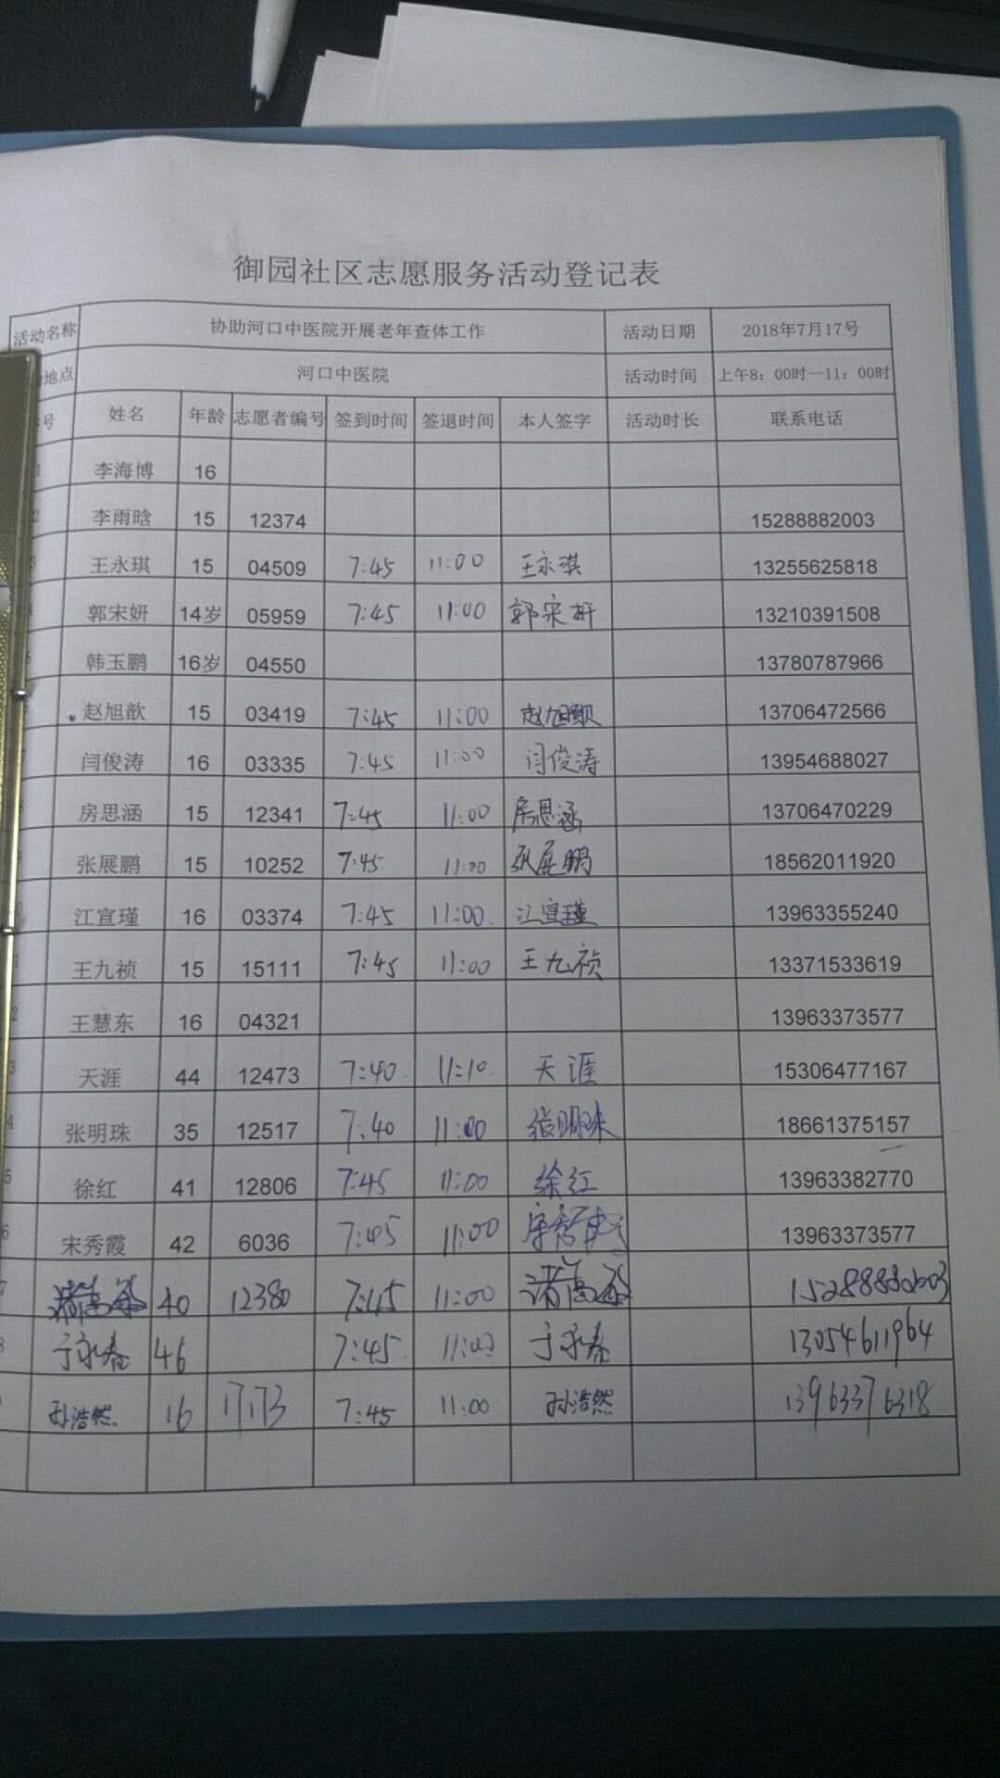 御园社区志愿服务活动登记表
活动名称 协助河口中医院开展老年查体工作 活动日期 2018年7月17号
地点 河口中医院 活动时间 上午8：00时—11：00时
号 姓名 年龄 志愿者编号 签到时间 签退时间 本人签字 活动时长 联系电话
1 李海博 16
2 李雨晗 15 12374 15288882003
3 王永琪 15 04509 7:45 11:00 王永琪 13255625818
郭宋妍 14岁 05959 7:45 11:00 郭宋妍 13210391508
韩玉鹏 16岁 04550 13780787966
赵旭歆 15 03419 7:45 11:00 赵旭歆 13706472566
闫俊涛 16 03335 7:45 11:00 闫俊涛 13954688027
房思涵 15 12341 7:45 11:00 房思涵 13706470229
张展鹏 15 10252 7:45 11:00 张展鹏 18562011920
江宣瑾 16 03374 7:45 11:00 江宣瑾 13963355240
王九祯 15 15111 7:45 11:00 王九祯 13371533619
2 王慧东 16 04321 13963373577
3 天涯 44 12473 7:40 11:10 天涯 15306477167
4 张明珠 35 12517 7:40 11:00 张明珠 18661375157
5 徐红 41 12806 7:45 11:00 徐红 13963382770
6 宋秀霞 42 6036 7:45 11:00 宋秀霞 13963373577
7 40 12380 7:45 11:00 15288882003
8 于永春 46 7:45 11:00 于永春 13054611964
孙浩然 16 17173 7:45 11:00 孙浩然 13963376318